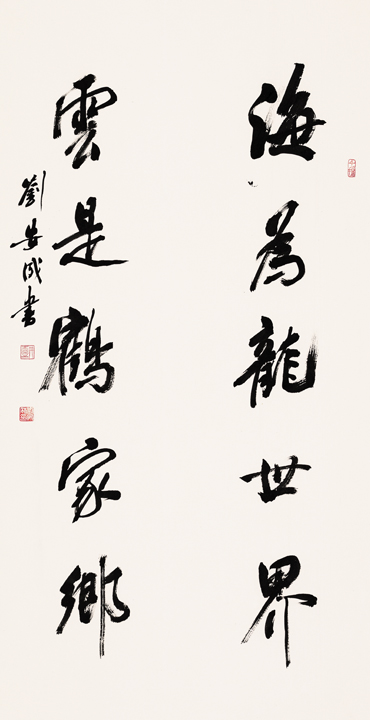 海為龍世界
雲是鶴家鄉
劉安成書